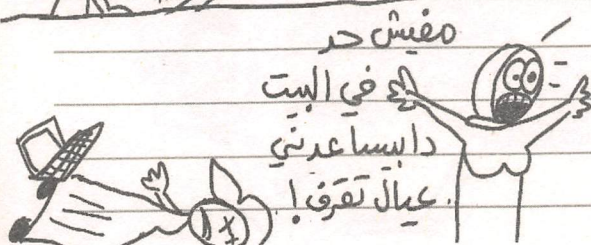 مفيش حد
في البيت
دا بيساعدني
عيال تقرف!